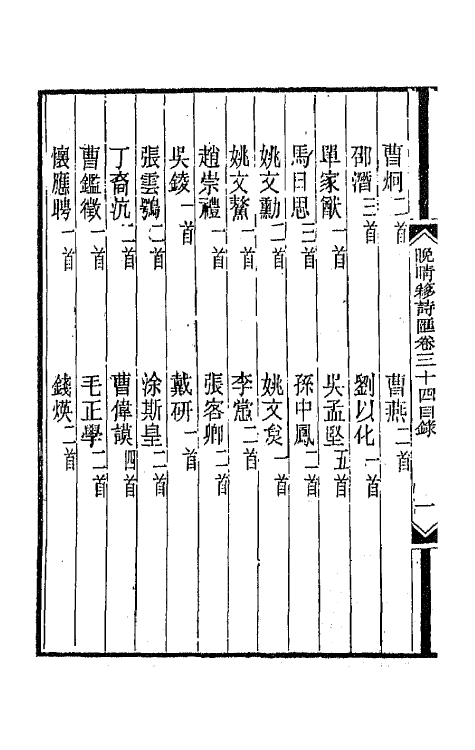 晚晴簃詩匯卷三十四目錄
一
曹炯二首　曹燕二首
邵潛三首　劉以化一首
單家猷一首　吳孟堅五首
馬日思三首　孫中鳳二首
姚文勳二首　姚文炱一首
姚文鰲一首　李嵩二首
趙崇禮一首　張容卿二首
吳錂一首　戴研一首
張雲鶚二首　涂斯皇二首
丁裔沆二首　曹偉謨四首
曹鑑徵一首　毛正學二首
懷應聘一首　錢煐二首